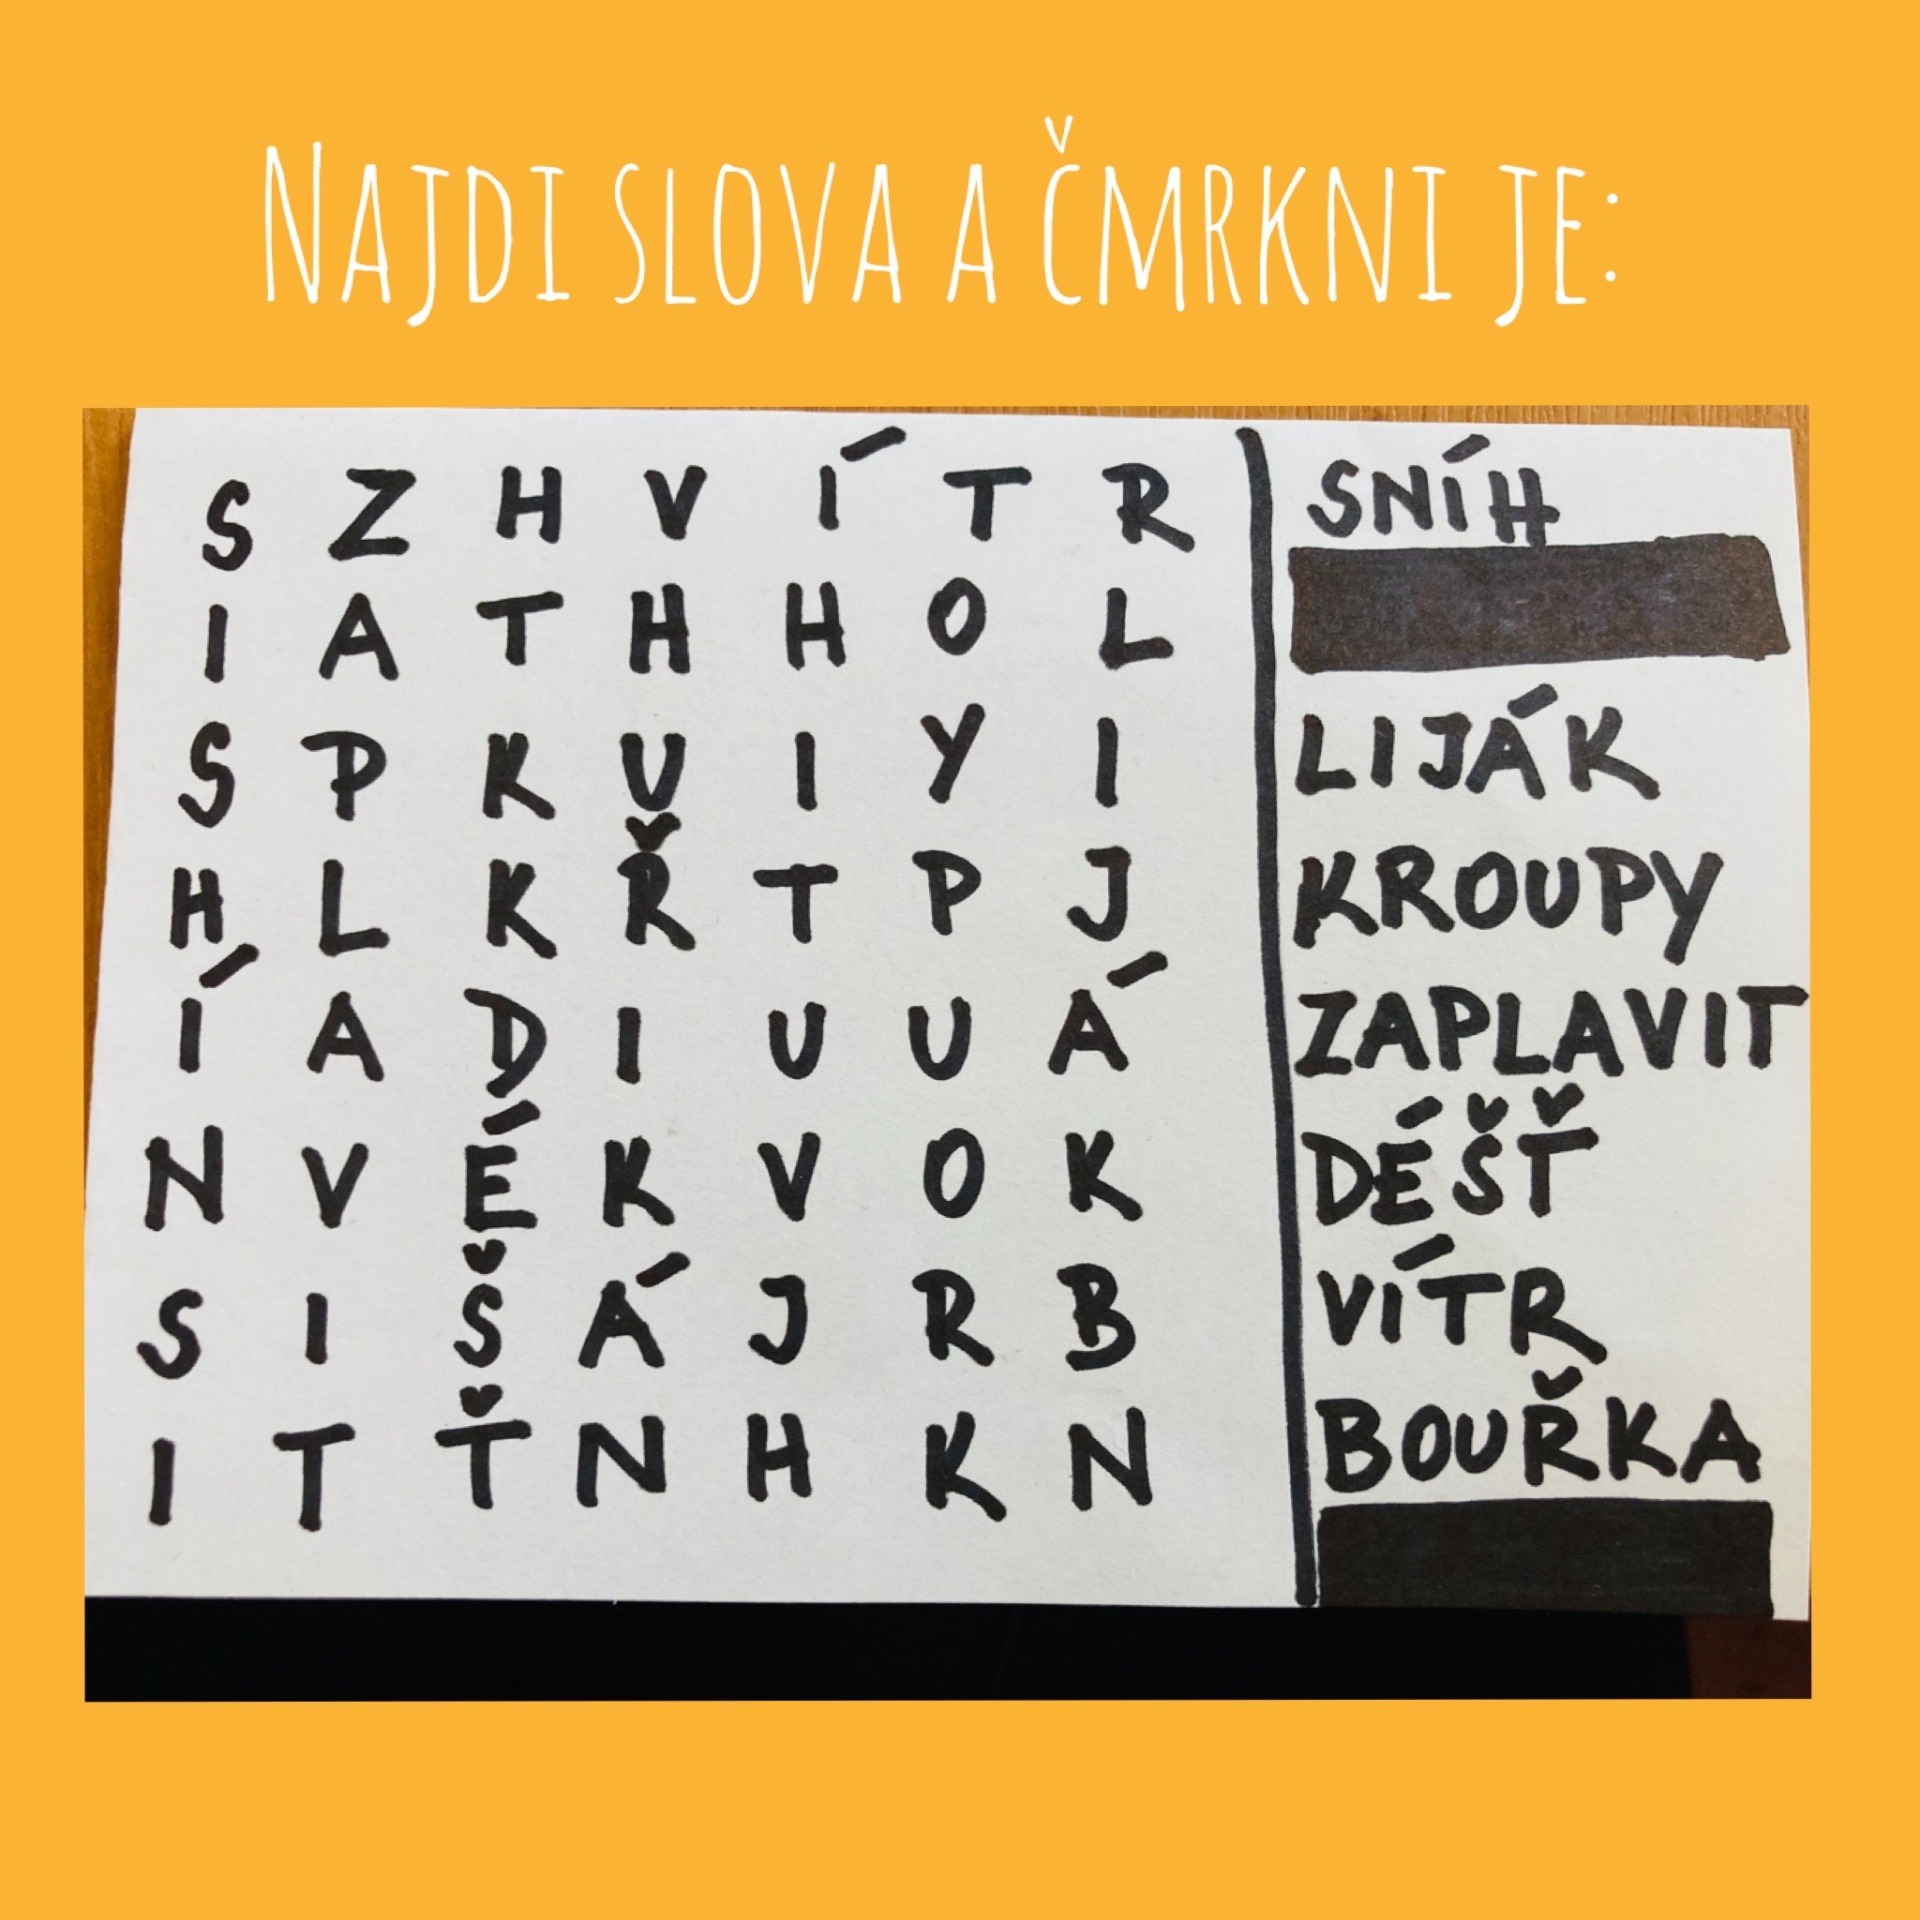 NAJDI SLOVA A ČMRKNI JE:
S Z H V Í T R
I A T H H O L
S P K U I Y I
H L K Ř T P J
Í A D I U U Á
N V É K V O K
S I Š Á J R B
I T Ť N H K N
SNÍH
LIJÁK
KROUPY
ZAPLAVIT
DÉŠŤ
VÍTR
BOUŘKA